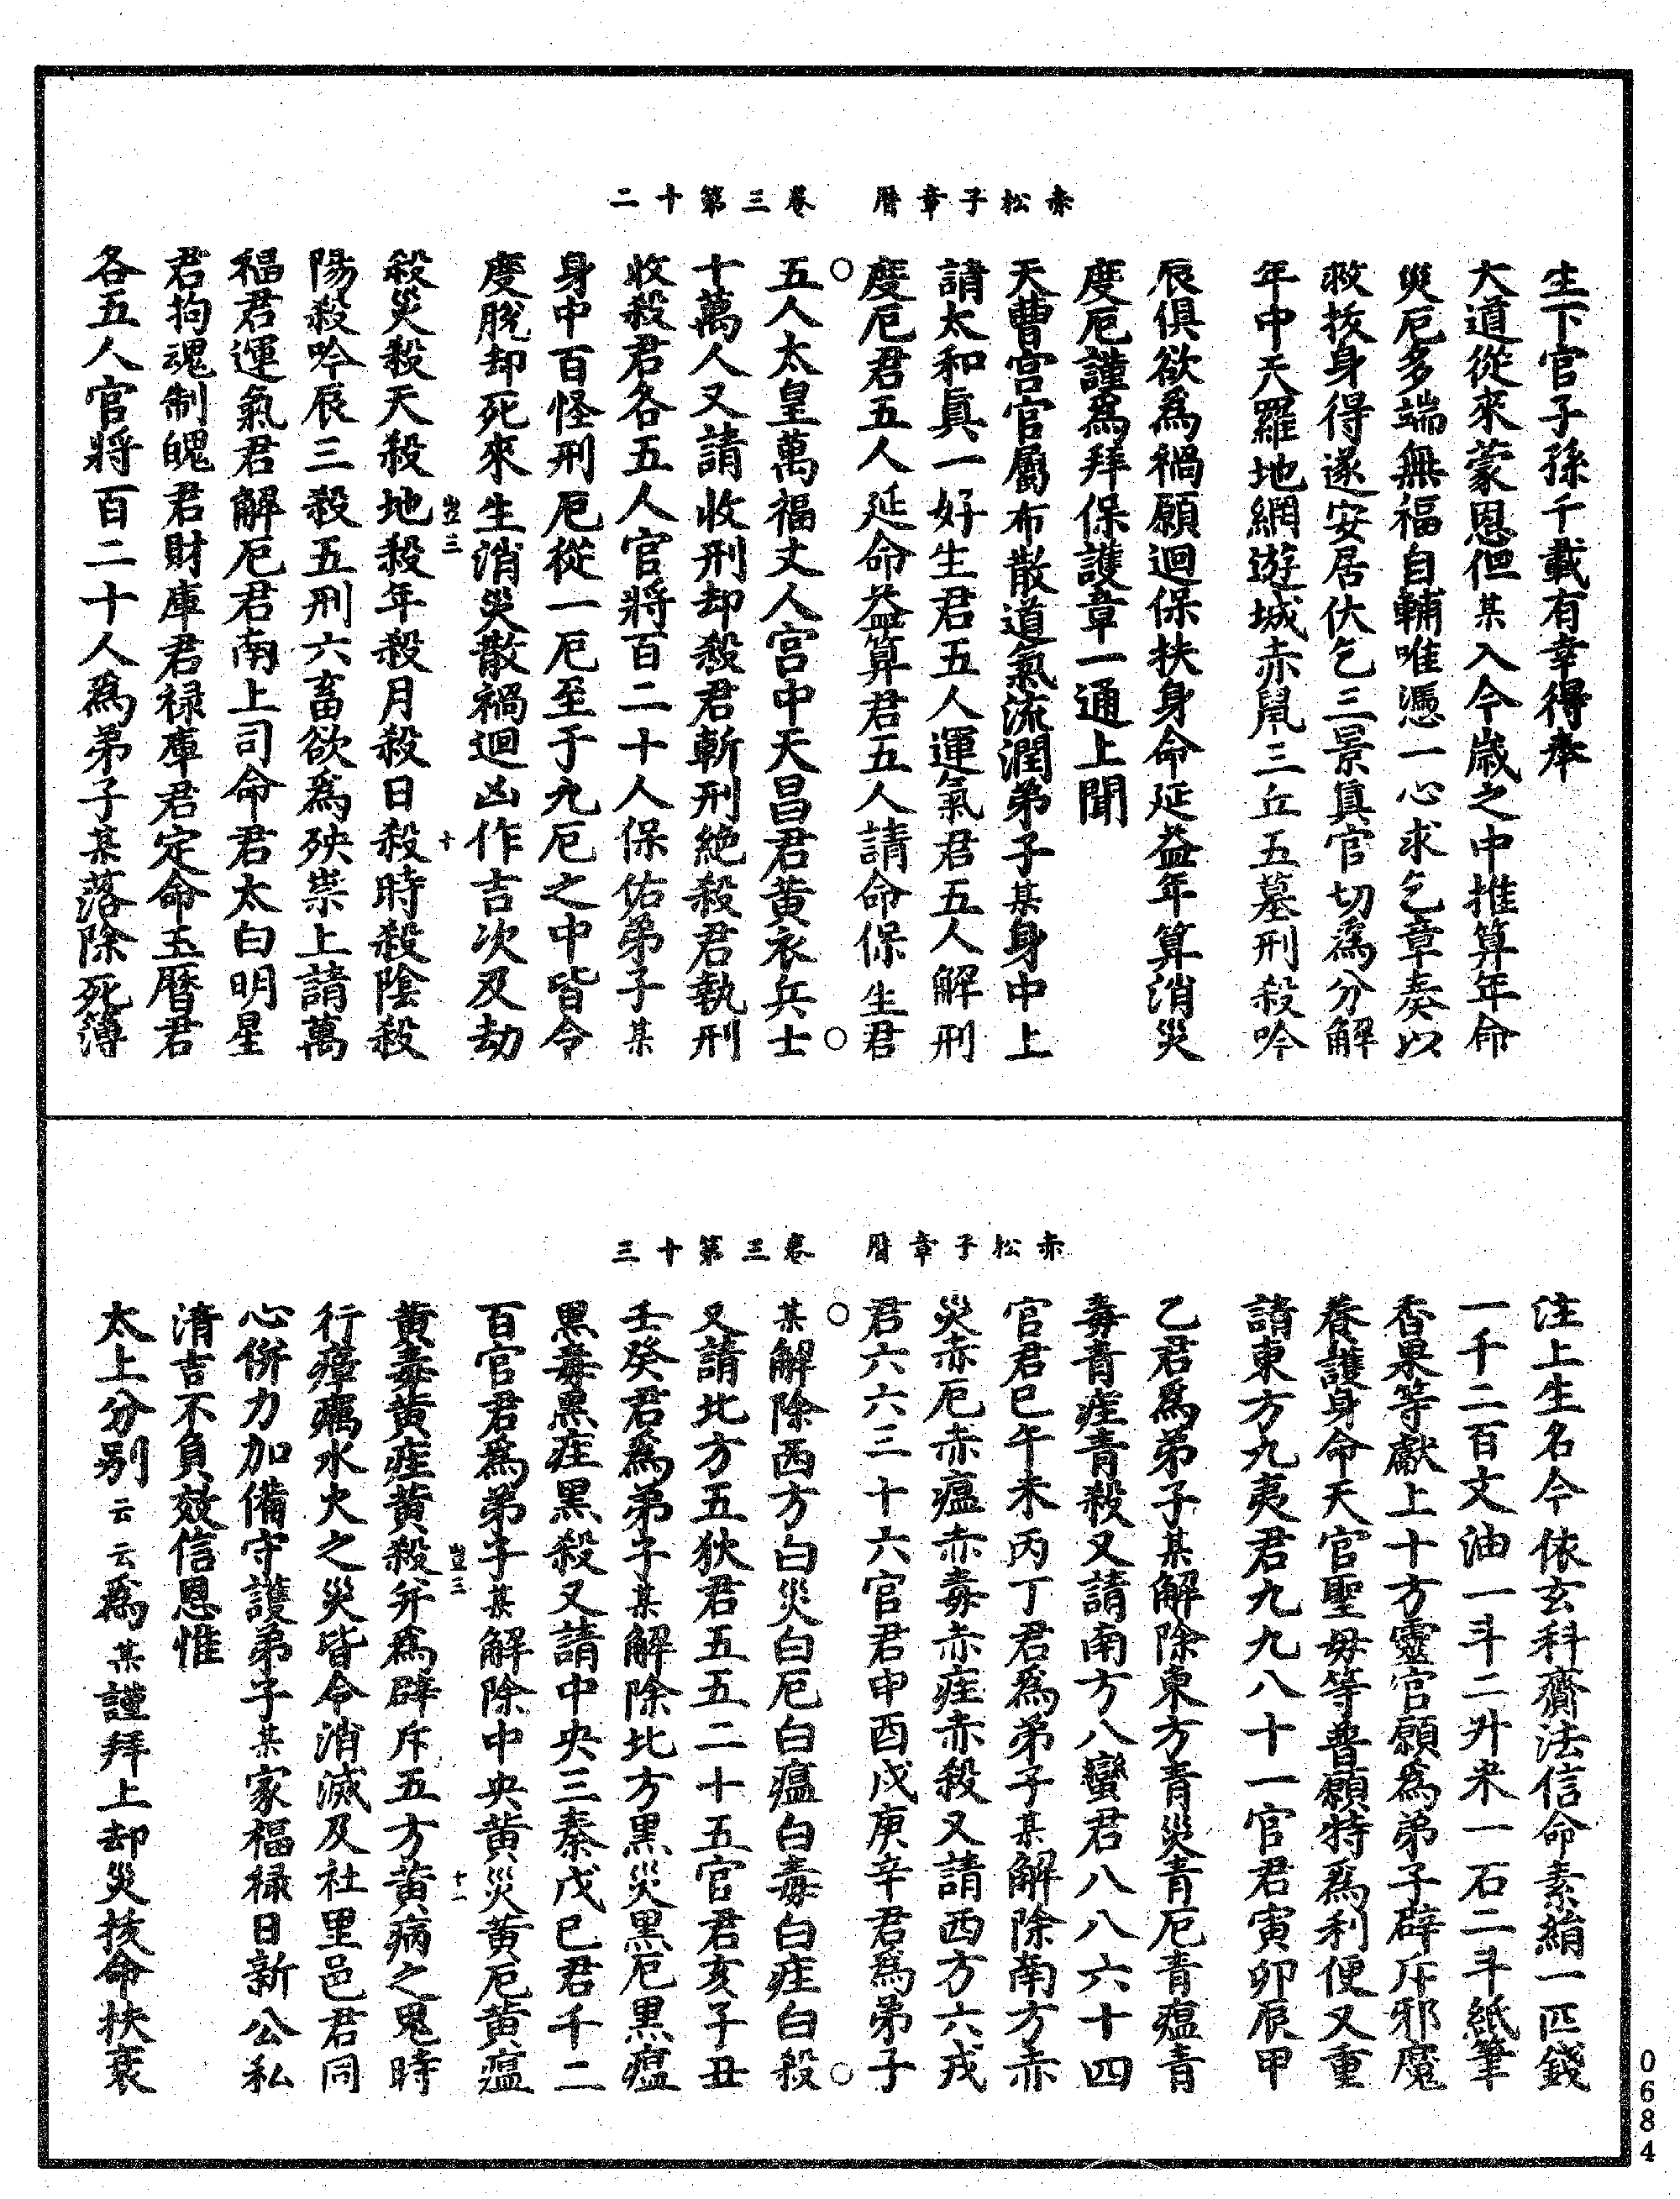 赤松子章曆　卷三第十二
生下官子孫千載有幸得奉
大道從來蒙恩但某入今歲之中推算年命
災厄多端無福自輔唯憑一心求乞章奏以
救拔身得遂安居伏乞三景真官切為分解
年中天羅地網遊城赤鼠三丘五墓刑殺吟
辰俱欲為禍願迴保扶身命延益年算消災
度厄謹為拜保護章一通上聞
天曹宮官屬布散道氣流潤弟子某身中上
請太和真一好生君五人運氣君五人解刑
度厄君五人延命益算君五人請命保生君
五人太皇萬福丈人宮中天昌君黃衣兵士
十萬人又請收刑却殺君斬刑絕殺君執刑
收殺君各五人官將百二十人保佑弟子某
身中百怪刑厄從一厄至于九厄之中皆令
度脫却死來生消災散禍迴凶作吉次及劫
豈三　十
殺災殺天殺地殺年殺月殺日殺時殺陰殺
陽殺吟辰三殺五刑六畜欲為殃祟上請萬
福君運氣君解厄君南上司命君太白明星
君拘魂制魄君財庫君祿庫君定命玉曆君
各五人官將百二十人為弟子某落除死簿
赤松子章曆　卷三第十三
注上生名今依玄科齎法信命素絹一匹錢
一千二百文油一斗二升米一石二斗紙筆
香果等獻上十方靈官願為弟子辟斥邪魔
養護身命天官聖母等普願特為利便又重
請東方九夷君九九八十一官君寅卯辰甲
乙君為弟子某解除東方青災青厄青瘟青
毒青疰青殺又請南方八蠻君八八六十四
官君巳午未丙丁君為弟子某解除南方赤
災赤厄赤瘟赤毒赤疰赤殺又請西方六戎
君六六三十六官君申酉戌庚辛君為弟子
某解除西方白災白厄白瘟白毒白疰白殺
又請北方五狄君五五二十五官君亥子丑
壬癸君為弟子某解除北方黑災黑厄黑瘟
黑毒黑疰黑殺又請中央三秦戊己君千二
百官君為弟子某解除中央黃災黃厄黃瘟
豈三　十一
黃毒黃疰黃殺并為辟斥五方黃病之鬼時
行瘴癘水火之災皆令消滅及社里邑君同
心併力加備守護弟子某家福祿日新公私
清吉不負效信恩惟
太上分別云云為某謹拜上却災拔命扶衰
0684